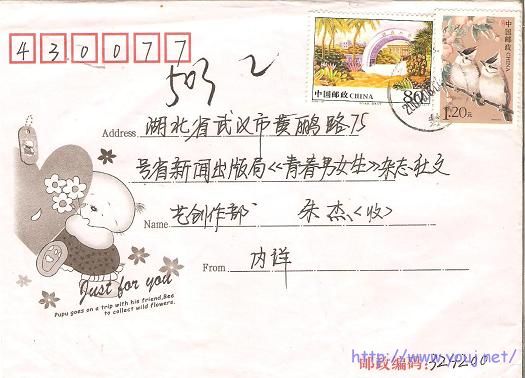 430077
503 2
中国邮政 CHINA
80分
中国邮政 CHINA
1.20元
Address 湖北省武汉市黄鹂路75
号省新闻出版局《青春男女生》杂志社文
Name 艺创作部 朱杰〈收〉
From 内详
Just for you
Pupu goes on a trip with his friend,Bee
to collect wild flowers.
邮政编码:324200
http://www.youj.net/